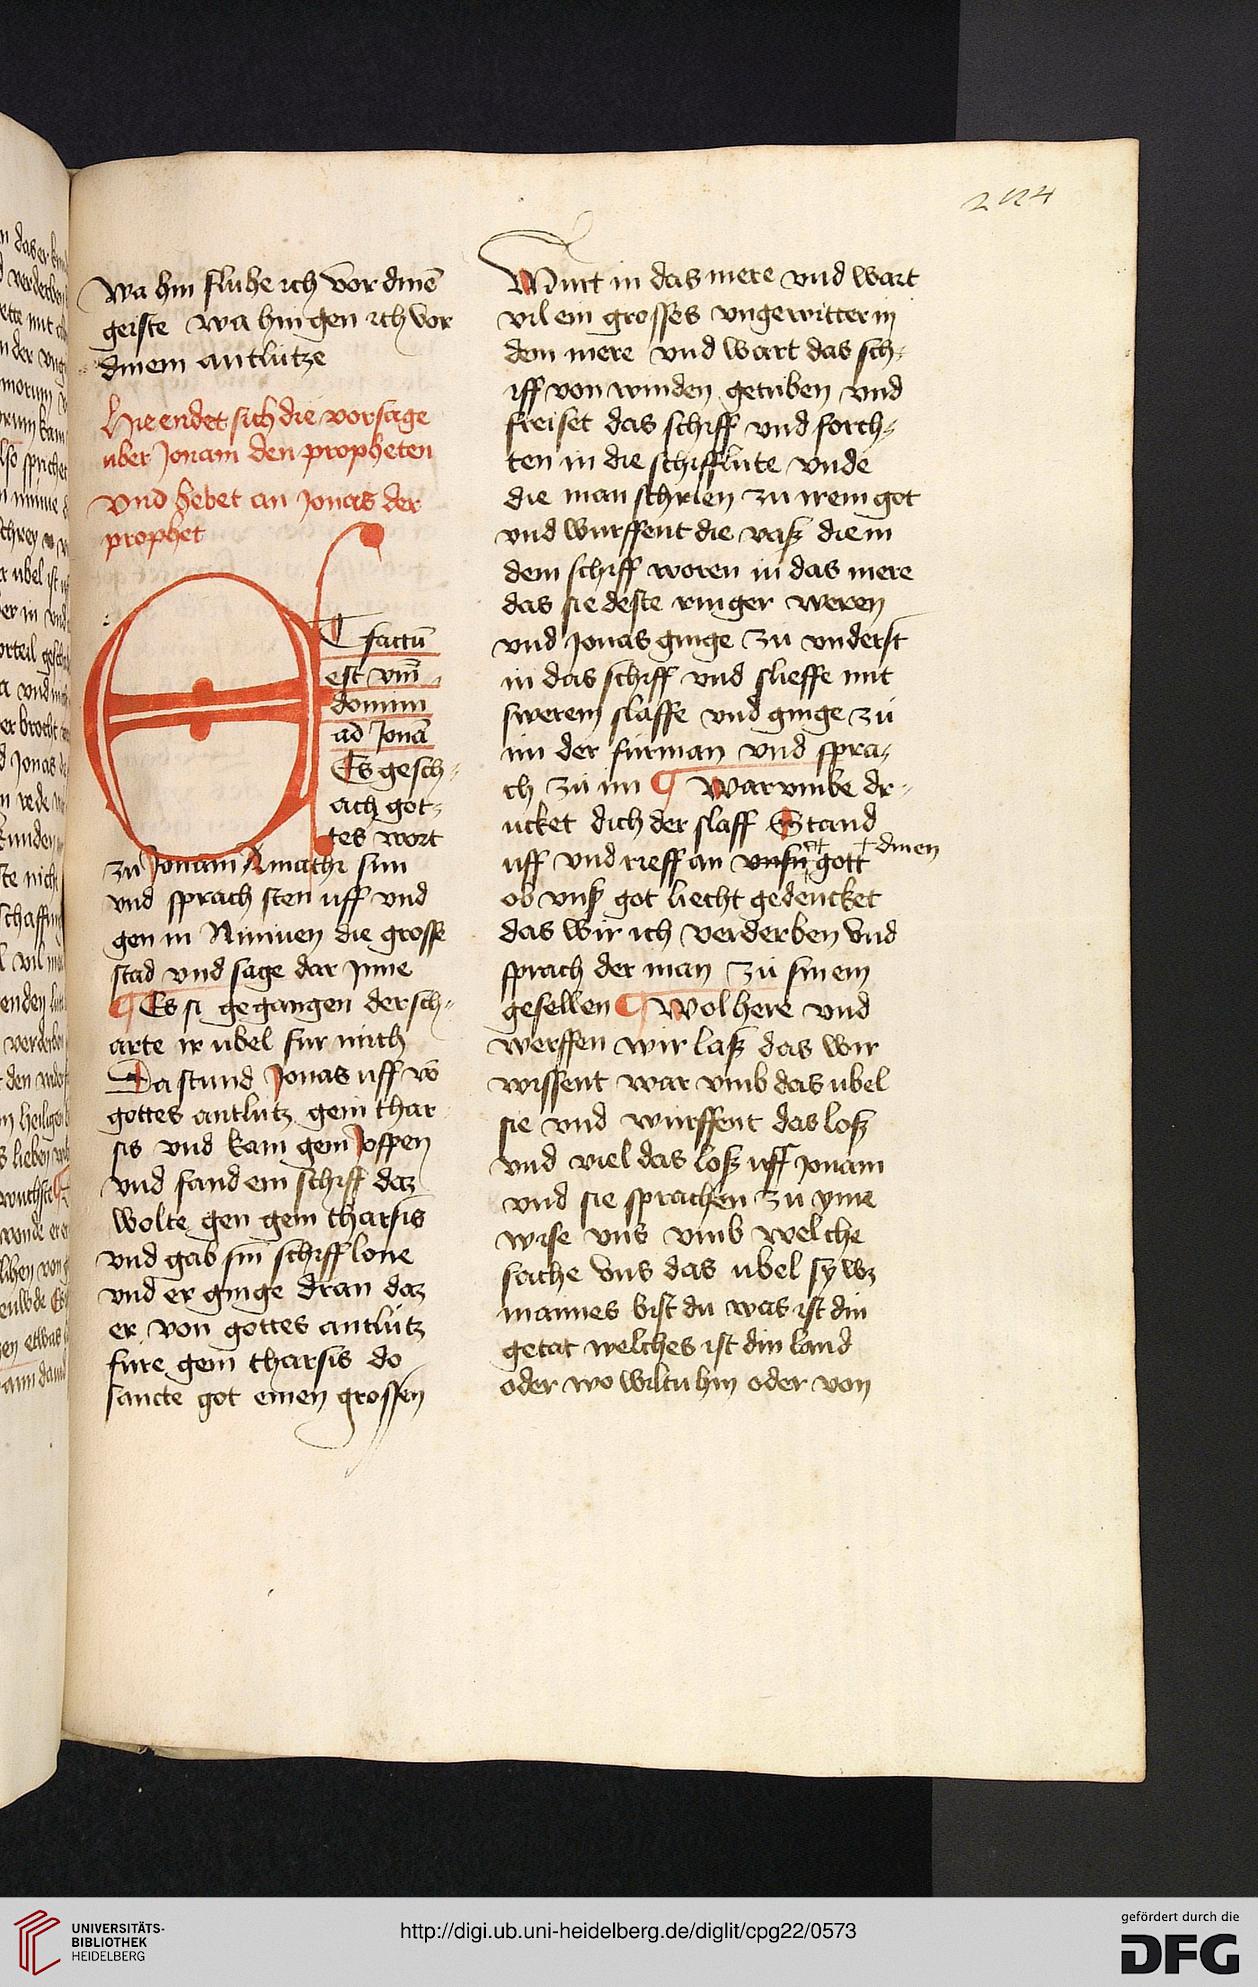 284
wa hin fluhe ich vor dinē
geiste wa hin gen ich vor
dinem antlutze
Hie endet sich die vorsage
uber Jonam den propheten
vnd hebet an Jonas der
prophet
ET factū
est vm̄
domini
ad Jonā
Es gesch-
ach got-
tes wort
zu Jonam Amathi sun
vnd sprach sten uff vnd
gen in Niniuen die grosse
stad vnd sage dar Inne
¶ Es si gegangen der sch-
arte ir ubel fur mich
Da stund Jonas uff vō
gottes antlutz gein thar
sis vnd kam gein Joppen
vnd fand ein schiff daz
wolte gen gein tharsis
vnd gab sin schifflone
vnd er ginge dran daz
er von gottes antlutz
fure gein tharsis do
sancte got einen grossen
Wint in das mere vnd wart
vil ein grosses vngewitter in
dem mere vnd wart das sch-
iff von winden getriben vnd
freiset das schiff vnd forch-
ten in die schifflute vnde
die man schrien zu irem got
vnd wurffent die vasz die in
dem schiff woren in das mere
das sie deste ringer weren
vnd Jonas ginge zu vnderst
in das schiff vnd slieffe mit
swerem slaffe vnd ginge zu
im der furman vnd spra-
ch zu im ¶ Warumbe dr-
ucket dich der slaff Stand
uff vnd rieff an vnsn gott dinen
ob vnsz got liecht gedencket
das wir ich verderben vnd
sprach der man zu sinem
gesellen ¶ Wol here vnd
werffen wir lasz das wir
wissent war vmb das ubel
sie vnd wurffent das losz
vnd viel das losz uff Jonam
vnd sie sprachen zu yme
wise vns vmb welche
sache vns das ubel sy wz
mannes bist du was ist din
getat welches ist din land
oder wo wiltu hin oder von
UNIVERSITÄTS-
BIBLIOTHEK
HEIDELBERG
http://digi.ub.uni-heidelberg.de/diglit/cpg22/0573
gefördert durch die
DFG